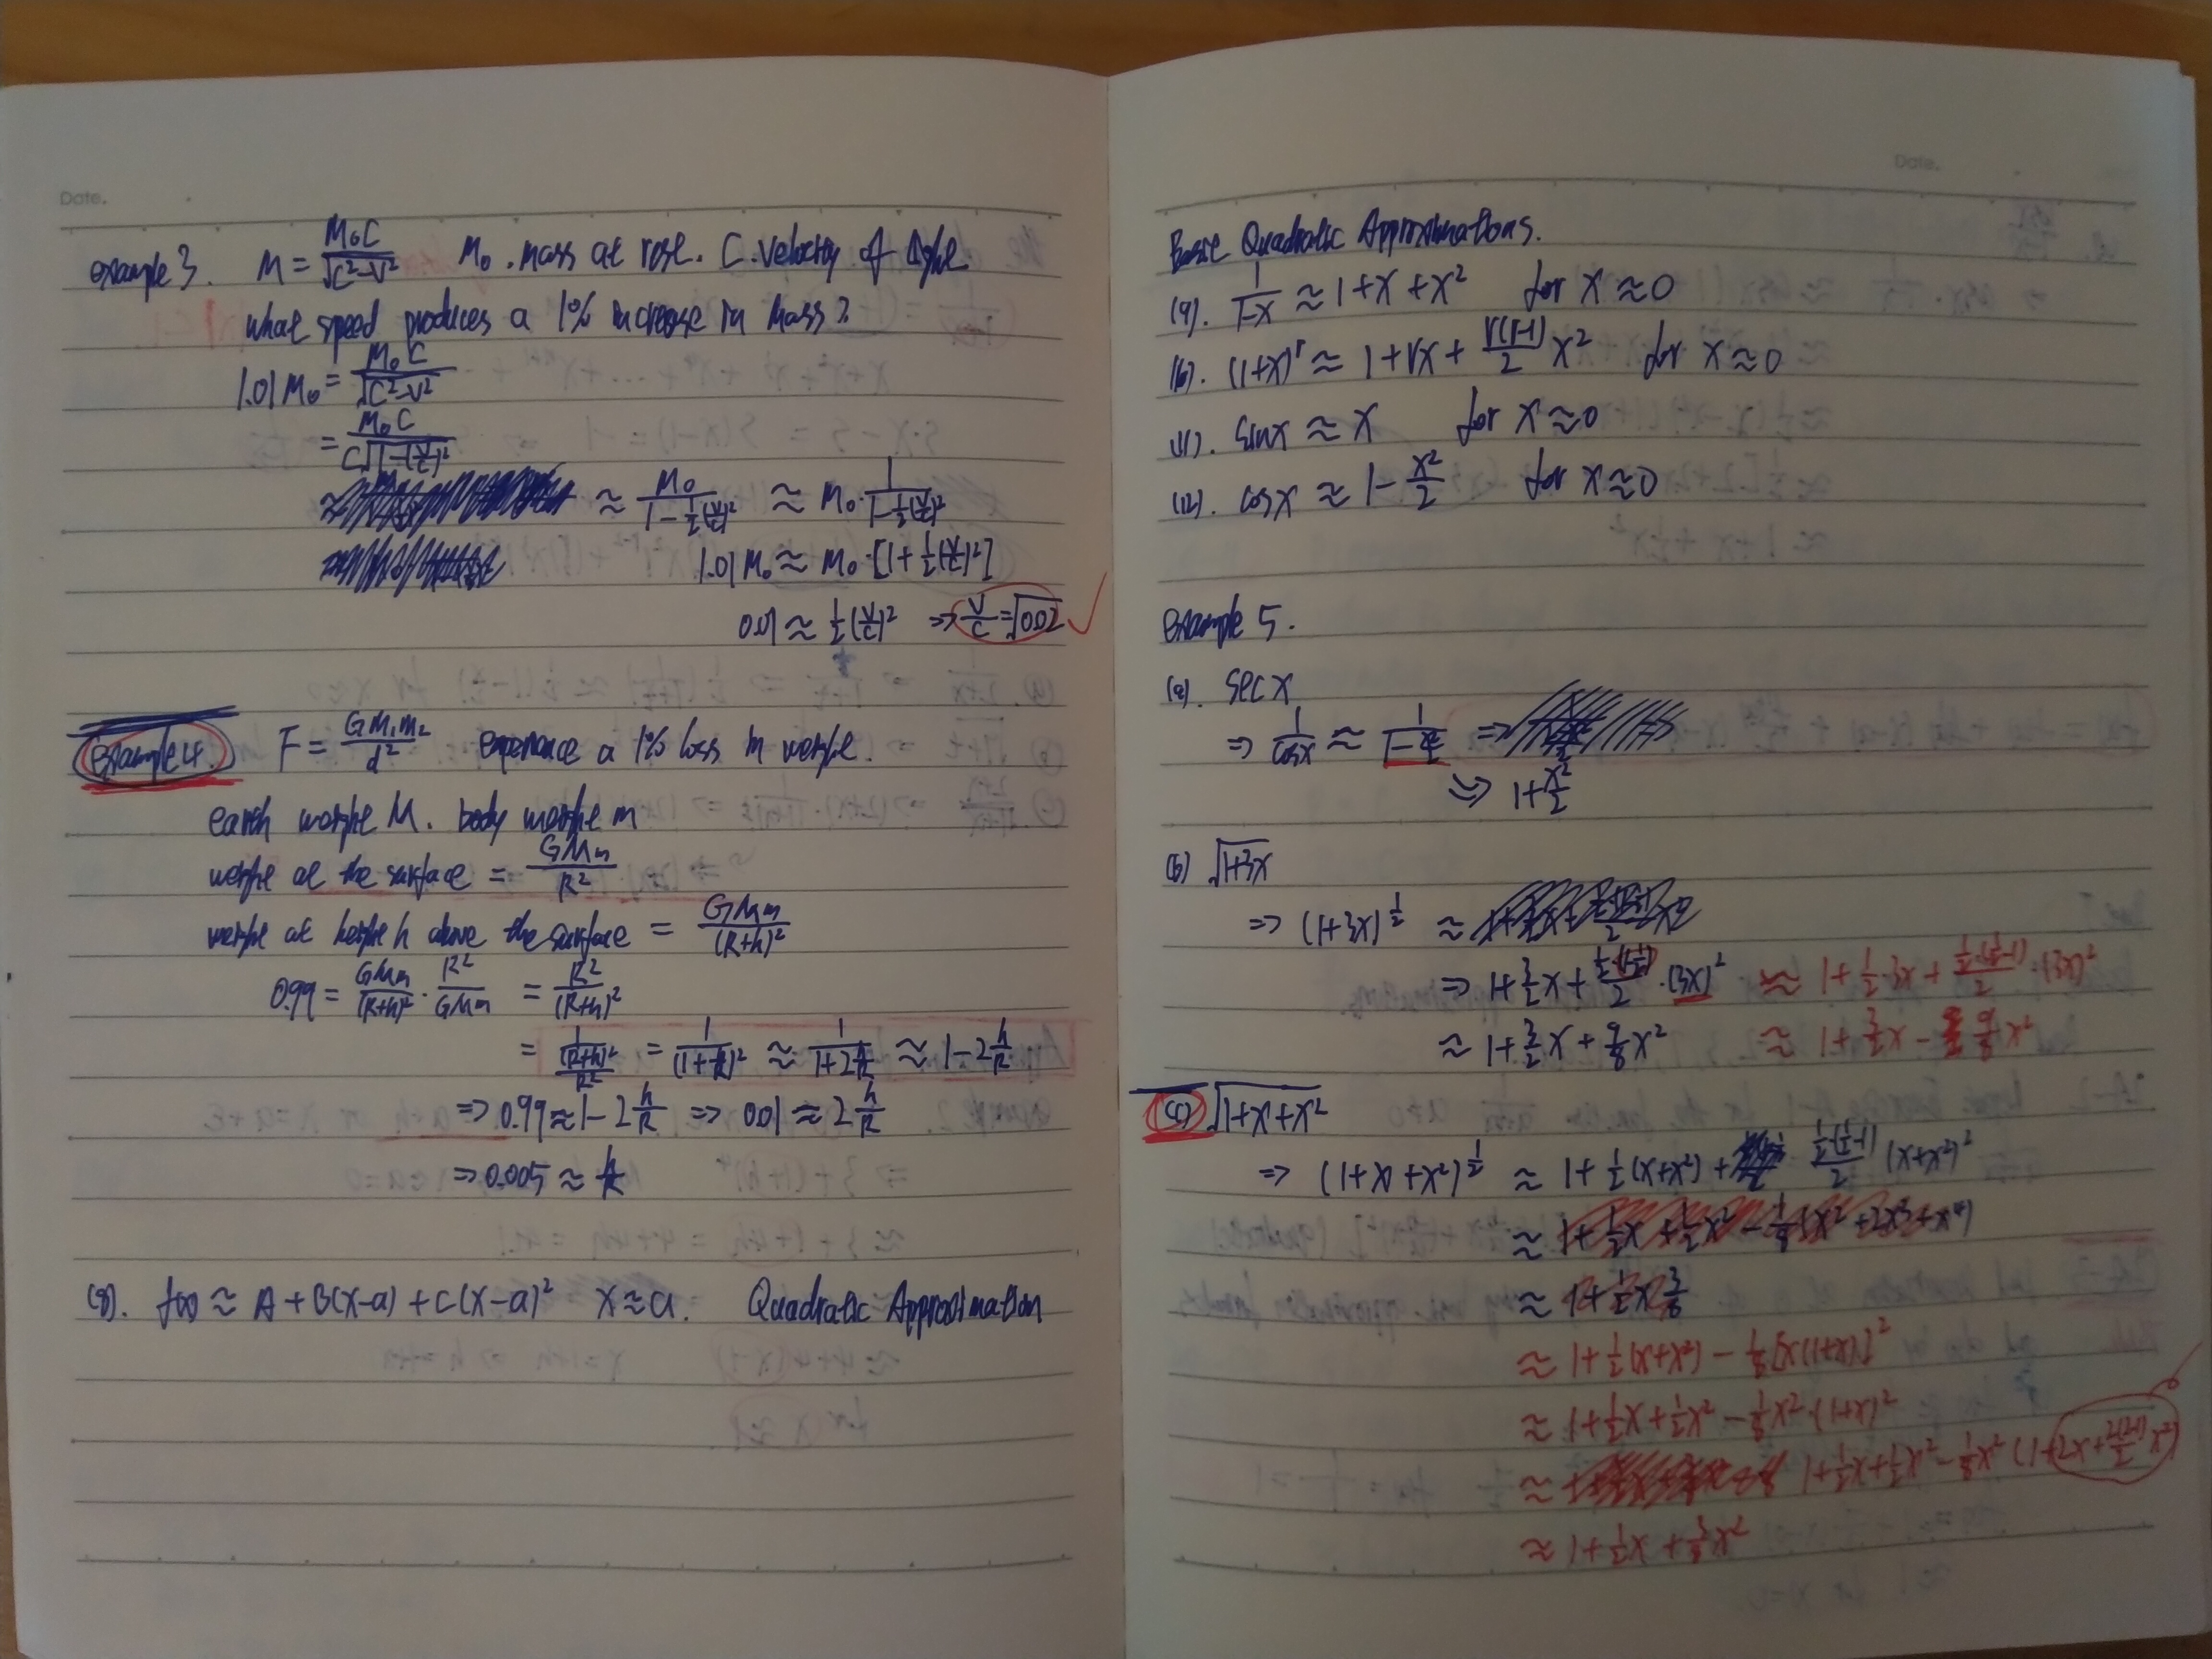 Date.
example 3. M = M₀C/√(C²-V²) M₀. mass at rest. C. velocity of light
what speed produces a 1% increase in mass?
1.01 M₀ = M₀C/√(C²-V²)
= M₀C/(C√(1-(V/C)²))
≈ M₀/(1-½(V/C)²) ≈ M₀·1/(1-½(V/C)²)
1.01 M₀ ≈ M₀·[1+½(V/C)²]
0.01 ≈ ½(V/C)² => V/C = √0.02 ✓
example 4. F = GM₁M₂/d² experience a 1% loss in weight.
earth weight M. body weight m
weight at the surface = GMm/R²
weight at height h above the surface = GMm/(R+h)²
0.99 = GMm/(R+h)² · R²/GMm = R²/(R+h)²
= 1/((R+h)²/R²) = 1/(1+h/R)² ≈ 1/(1+2h/R) ≈ 1-2h/R
=> 0.99 ≈ 1-2h/R => 0.01 ≈ 2h/R
=> 0.005 ≈ h/R
(8). f(x) ≈ A+B(x-a)+C(x-a)² x≈a. Quadratic Approximation
Date.
Basic Quadratic Approximations.
(9). 1/(1-x) ≈ 1+x+x² for x≈0
(10). (1+x)ʳ ≈ 1+rx+r(r-1)/2 x² for x≈0
(11). sinx ≈ x for x≈0
(12). cosx ≈ 1-x²/2 for x≈0
example 5.
(a). secx
=> 1/cosx ≈ 1/(1-x²/2) =>
=> 1+x²/2
(b) √(1+3x)
=> (1+3x)^½ ≈
=> 1+3/2x+½·(1-½)/2·(3x)² ≈ 1+½·3x+½·(½-1)/2·(3x)²
≈ 1+3/2x+9/8x² ≈ 1+3/2x-9/8x²
(c) √(1+x+x²)
=> (1+x+x²)^½ ≈ 1+½(x+x²)+½·(½-1)/2 (x+x²)²
≈ 1+½x+½x²-⅛(x²+2x³+x⁴)
≈ 1+½x 3/8
≈ 1+½(x+x²)-⅛[x(1+x)]²
≈ 1+½x+½x²-⅛x²·(1+x)²
≈ 1+½x+½x²-⅛x²(1+2x+2(2-1)/2 x²) 0
≈ 1+½x+3/8x²